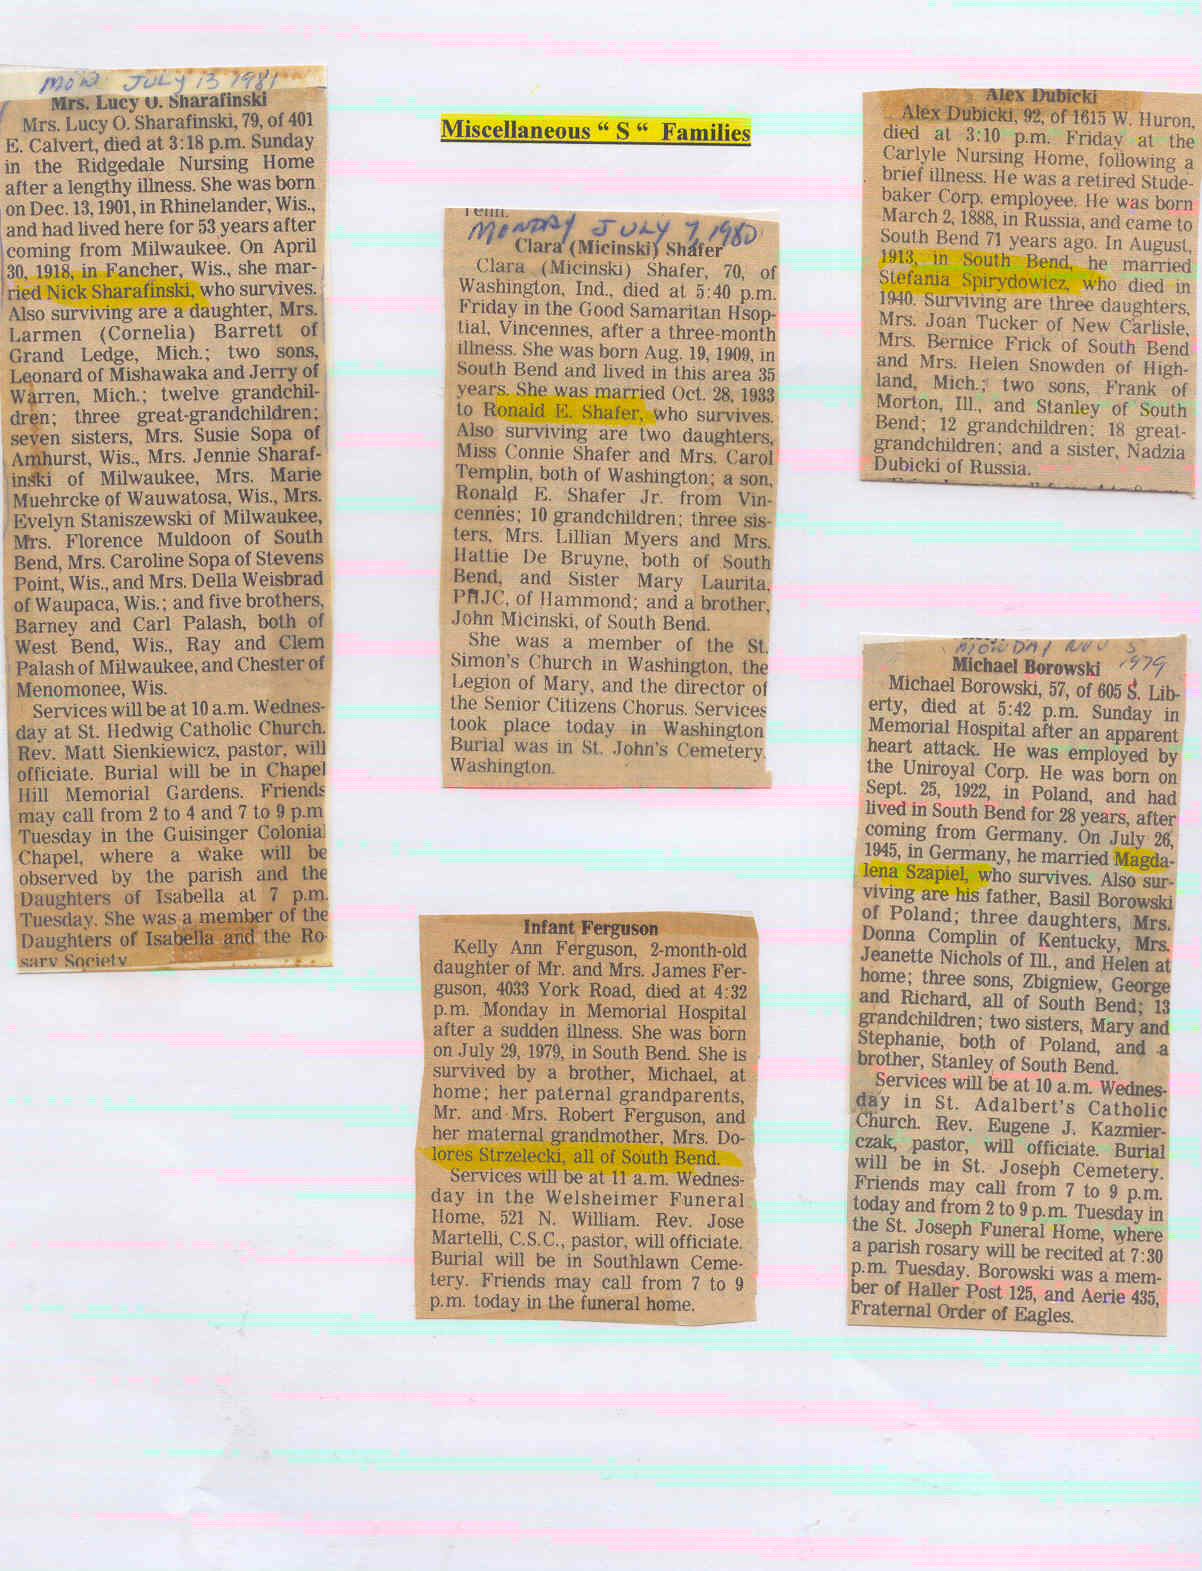 MON JULY 13 1981
Mrs. Lucy O. Sharafinski
Mrs. Lucy O. Sharafinski, 79, of 401
E. Calvert, died at 3:18 p.m. Sunday
in the Ridgedale Nursing Home
after a lengthy illness. She was born
on Dec. 13, 1901, in Rhinelander, Wis.,
and had lived here for 53 years after
coming from Milwaukee. On April
30, 1918, in Fancher, Wis., she mar-
ried Nick Sharafinski, who survives.
Also surviving are a daughter, Mrs.
Larmen (Cornelia) Barrett of
Grand Ledge, Mich.; two sons,
Leonard of Mishawaka and Jerry of
Warren, Mich.; twelve grandchil-
dren; three great-grandchildren;
seven sisters, Mrs. Susie Sopa of
Amhurst, Wis., Mrs. Jennie Sharaf-
inski of Milwaukee, Mrs. Marie
Muehrcke of Wauwatosa, Wis., Mrs.
Evelyn Staniszewski of Milwaukee,
Mrs. Florence Muldoon of South
Bend, Mrs. Caroline Sopa of Stevens
Point, Wis., and Mrs. Della Weisbrad
of Waupaca, Wis.; and five brothers,
Barney and Carl Palash, both of
West Bend, Wis., Ray and Clem
Palash of Milwaukee, and Chester of
Menomonee, Wis.
Services will be at 10 a.m. Wednes-
day at St. Hedwig Catholic Church.
Rev. Matt Sienkiewicz, pastor, will
officiate. Burial will be in Chapel
Hill Memorial Gardens. Friends
may call from 2 to 4 and 7 to 9 p.m
Tuesday in the Guisinger Colonial
Chapel, where a wake will be
observed by the parish and the
Daughters of Isabella at 7 p.m.
Tuesday. She was a member of the
Daughters of Isabella and the Ro-
sary Society
Miscellaneous “ S “ Families
Tenn.
MONDAY JULY 7, 1980
Clara (Micinski) Shafer
Clara (Micinski) Shafer, 70, of
Washington, Ind., died at 5:40 p.m.
Friday in the Good Samaritan Hsop-
tial, Vincennes, after a three-month
illness. She was born Aug. 19, 1909, in
South Bend and lived in this area 35
years. She was married Oct. 28, 1933
to Ronald E. Shafer, who survives.
Also surviving are two daughters,
Miss Connie Shafer and Mrs. Carol
Templin, both of Washington; a son,
Ronald E. Shafer Jr. from Vin-
cennes; 10 grandchildren; three sis-
ters, Mrs. Lillian Myers and Mrs.
Hattie De Bruyne, both of South
Bend, and Sister Mary Laurita,
PHJC, of Hammond; and a brother,
John Micinski, of South Bend.
She was a member of the St.
Simon's Church in Washington, the
Legion of Mary, and the director of
the Senior Citizens Chorus. Services
took place today in Washington
Burial was in St. John's Cemetery,
Washington.
Infant Ferguson
Kelly Ann Ferguson, 2-month-old
daughter of Mr. and Mrs. James Fer-
guson, 4033 York Road, died at 4:32
p.m. Monday in Memorial Hospital
after a sudden illness. She was born
on July 29, 1979, in South Bend. She is
survived by a brother, Michael, at
home; her paternal grandparents,
Mr. and Mrs. Robert Ferguson, and
her maternal grandmother, Mrs. Do-
lores Strzelecki, all of South Bend.
Services will be at 11 a.m. Wednes-
day in the Welsheimer Funeral
Home, 521 N. William. Rev. Jose
Martelli, C.S.C., pastor, will officiate.
Burial will be in Southlawn Ceme-
tery. Friends may call from 7 to 9
p.m. today in the funeral home.
Alex Dubicki
Alex Dubicki, 92, of 1615 W. Huron,
died at 3:10 p.m. Friday at the
Carlyle Nursing Home, following a
brief illness. He was a retired Stude-
baker Corp. employee. He was born
March 2, 1888, in Russia, and came to
South Bend 71 years ago. In August,
1913, in South Bend, he married
Stefania Spirydowicz, who died in
1940. Surviving are three daughters,
Mrs. Joan Tucker of New Carlisle,
Mrs. Bernice Frick of South Bend
and Mrs. Helen Snowden of High-
land, Mich.; two sons, Frank of
Morton, Ill., and Stanley of South
Bend; 12 grandchildren; 18 great-
grandchildren; and a sister, Nadzia
Dubicki of Russia.
MONDAY NOV 5
1979
Michael Borowski
Michael Borowski, 57, of 605 S. Lib-
erty, died at 5:42 p.m. Sunday in
Memorial Hospital after an apparent
heart attack. He was employed by
the Uniroyal Corp. He was born on
Sept. 25, 1922, in Poland, and had
lived in South Bend for 28 years, after
coming from Germany. On July 26,
1945, in Germany, he married Magda-
lena Szapiel, who survives. Also sur-
viving are his father, Basil Borowski
of Poland; three daughters, Mrs.
Donna Complin of Kentucky, Mrs.
Jeanette Nichols of Ill., and Helen at
home; three sons, Zbigniew, George
and Richard, all of South Bend; 13
grandchildren; two sisters, Mary and
Stephanie, both of Poland, and a
brother, Stanley of South Bend.
Services will be at 10 a.m. Wednes-
day in St. Adalbert's Catholic
Church. Rev. Eugene J. Kazmier-
czak, pastor, will officiate. Burial
will be in St. Joseph Cemetery.
Friends may call from 7 to 9 p.m.
today and from 2 to 9 p.m. Tuesday in
the St. Joseph Funeral Home, where
a parish rosary will be recited at 7:30
p.m. Tuesday. Borowski was a mem-
ber of Haller Post 125, and Aerie 435,
Fraternal Order of Eagles.